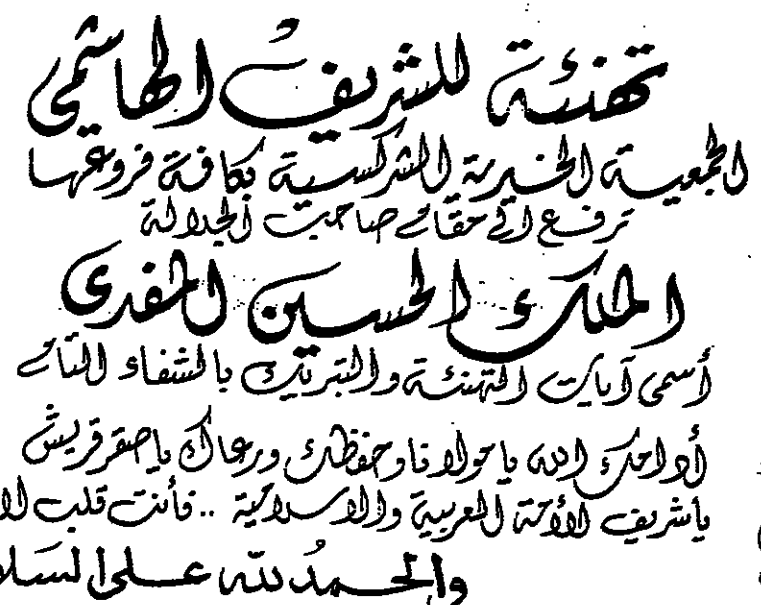 تهنئة للشريف الهاشمي
الجمعية الخيرية الشركسية بكافة فروعها
ترفع الى مقام صاحب الجلالة
الملك الحسين المفدى
أسمى آيات التهنئة والتبريك بالشفاء التام
أدامك الله يا مولانا وحفظك ورعاك يا صقر قريش
يا شريف الأمة العربية والاسلامية .. فأنت قلب
والحمد لله على